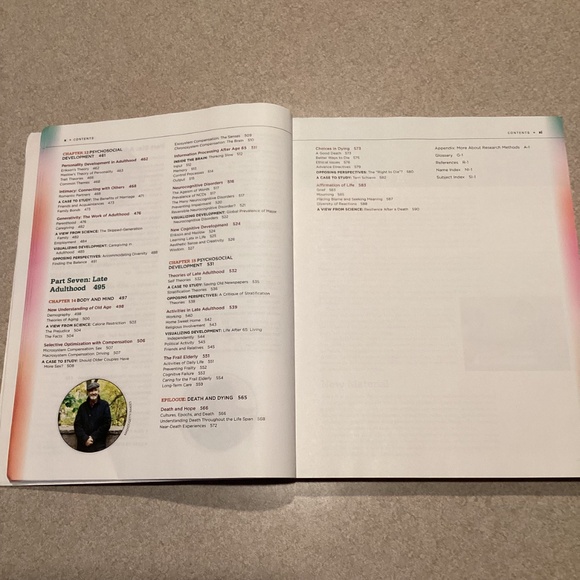 CONTENTS
CHAPTER 13 PSYCHOSOCIAL
DEVELOPMENT 461
Personality Development in Adulthood 462
Erikson's Theory 462
Maslow's Theory of Personality 463
Trait Theories 465
Common Themes 468
Intimacy: Connecting with Others 468
Romantic Partners 468
A CASE TO STUDY: The Benefits of Marriage 471
Friends and Acquaintances 473
Family Bonds 475
Generativity: The Work of Adulthood 478
Parenthood 478
Caregiving 482
A VIEW FROM SCIENCE: The Skipped-Generation
Family 483
Employment 484
VISUALIZING DEVELOPMENT: Caregiving in
Adulthood 485
OPPOSING PERSPECTIVES: Accommodating Diversity 488
Finding the Balance 491
Part Seven: Late
Adulthood 495
CHAPTER 14 BODY AND MIND 497
New Understanding of Old Age 498
Demography 498
Theories of Aging 500
A VIEW FROM SCIENCE: Calorie Restriction 503
The Prejudice 504
The Facts 504
Selective Optimization with Compensation 506
Microsystem Compensation: Sex 507
Macrosystem Compensation: Driving 507
A CASE TO STUDY: Should Older Couples Have
More Sex? 508
Exosystem Compensation: The Senses 509
Chronosystem Compensation: The Brain 510
Information Processing After Age 65 511
INSIDE THE BRAIN: Thinking Slow 512
Input 512
Memory 513
Control Processes 514
Output 515
Neurocognitive Disorders 516
The Ageism of Words 517
Prevalence of NCDs 517
The Many Neurocognitive Disorders 517
Preventing Impairment 520
Reversible Neurocognitive Disorder? 521
VISUALIZING DEVELOPMENT: Global Prevalence of Major
Neurocognitive Disorders 522
New Cognitive Development 524
Erikson and Maslow 524
Learning Late in Life 525
Aesthetic Sense and Creativity 526
Wisdom 527
CHAPTER 15 PSYCHOSOCIAL
DEVELOPMENT 531
Theories of Late Adulthood 532
Self Theories 532
A CASE TO STUDY: Saving Old Newspapers 535
Stratification Theories 536
OPPOSING PERSPECTIVES: A Critique of Stratification
Theories 538
Activities in Late Adulthood 539
Working 540
Home Sweet Home 542
Religious Involvement 543
VISUALIZING DEVELOPMENT: Life After 65: Living
Independently 544
Political Activity 545
Friends and Relatives 545
The Frail Elderly 551
Activities of Daily Life 551
Preventing Frailty 552
Cognitive Failure 553
Caring for the Frail Elderly 554
Long-Term Care 558
EPILOGUE: DEATH AND DYING 565
Death and Hope 566
Cultures, Epochs, and Death 566
Understanding Death Throughout the Life Span 568
Near-Death Experiences 572
CONTENTS
Choices in Dying 573
A Good Death 573
Better Ways to Die 575
Ethical Issues 576
Advance Directives 579
OPPOSING PERSPECTIVES: The "Right to Die"? 580
A CASE TO STUDY: Terri Schiavo 582
Affirmation of Life 583
Grief 583
Mourning 585
Placing Blame and Seeking Meaning 587
Diversity of Reactions 589
A VIEW FROM SCIENCE: Resilience After a Death 590
Appendix: More About Research Methods A-1
Glossary G-1
References R-1
Name Index N-1
Subject Index S-1